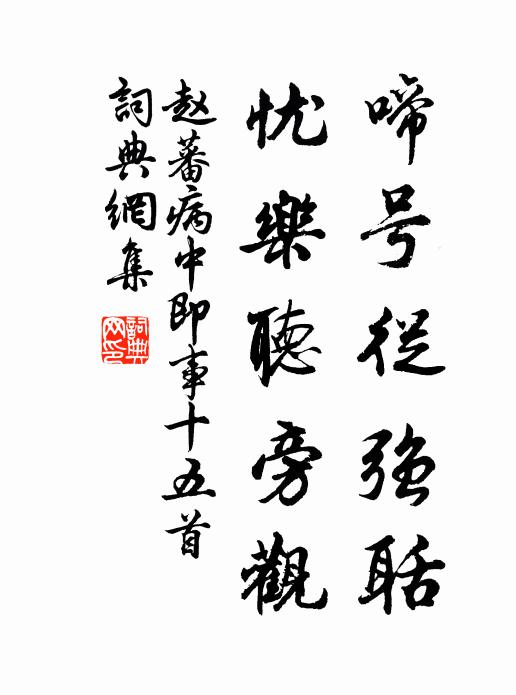 啼号從強聒
忧樂聽旁觀
赵蕃病中即事十五首
詞典網集
詞典网印